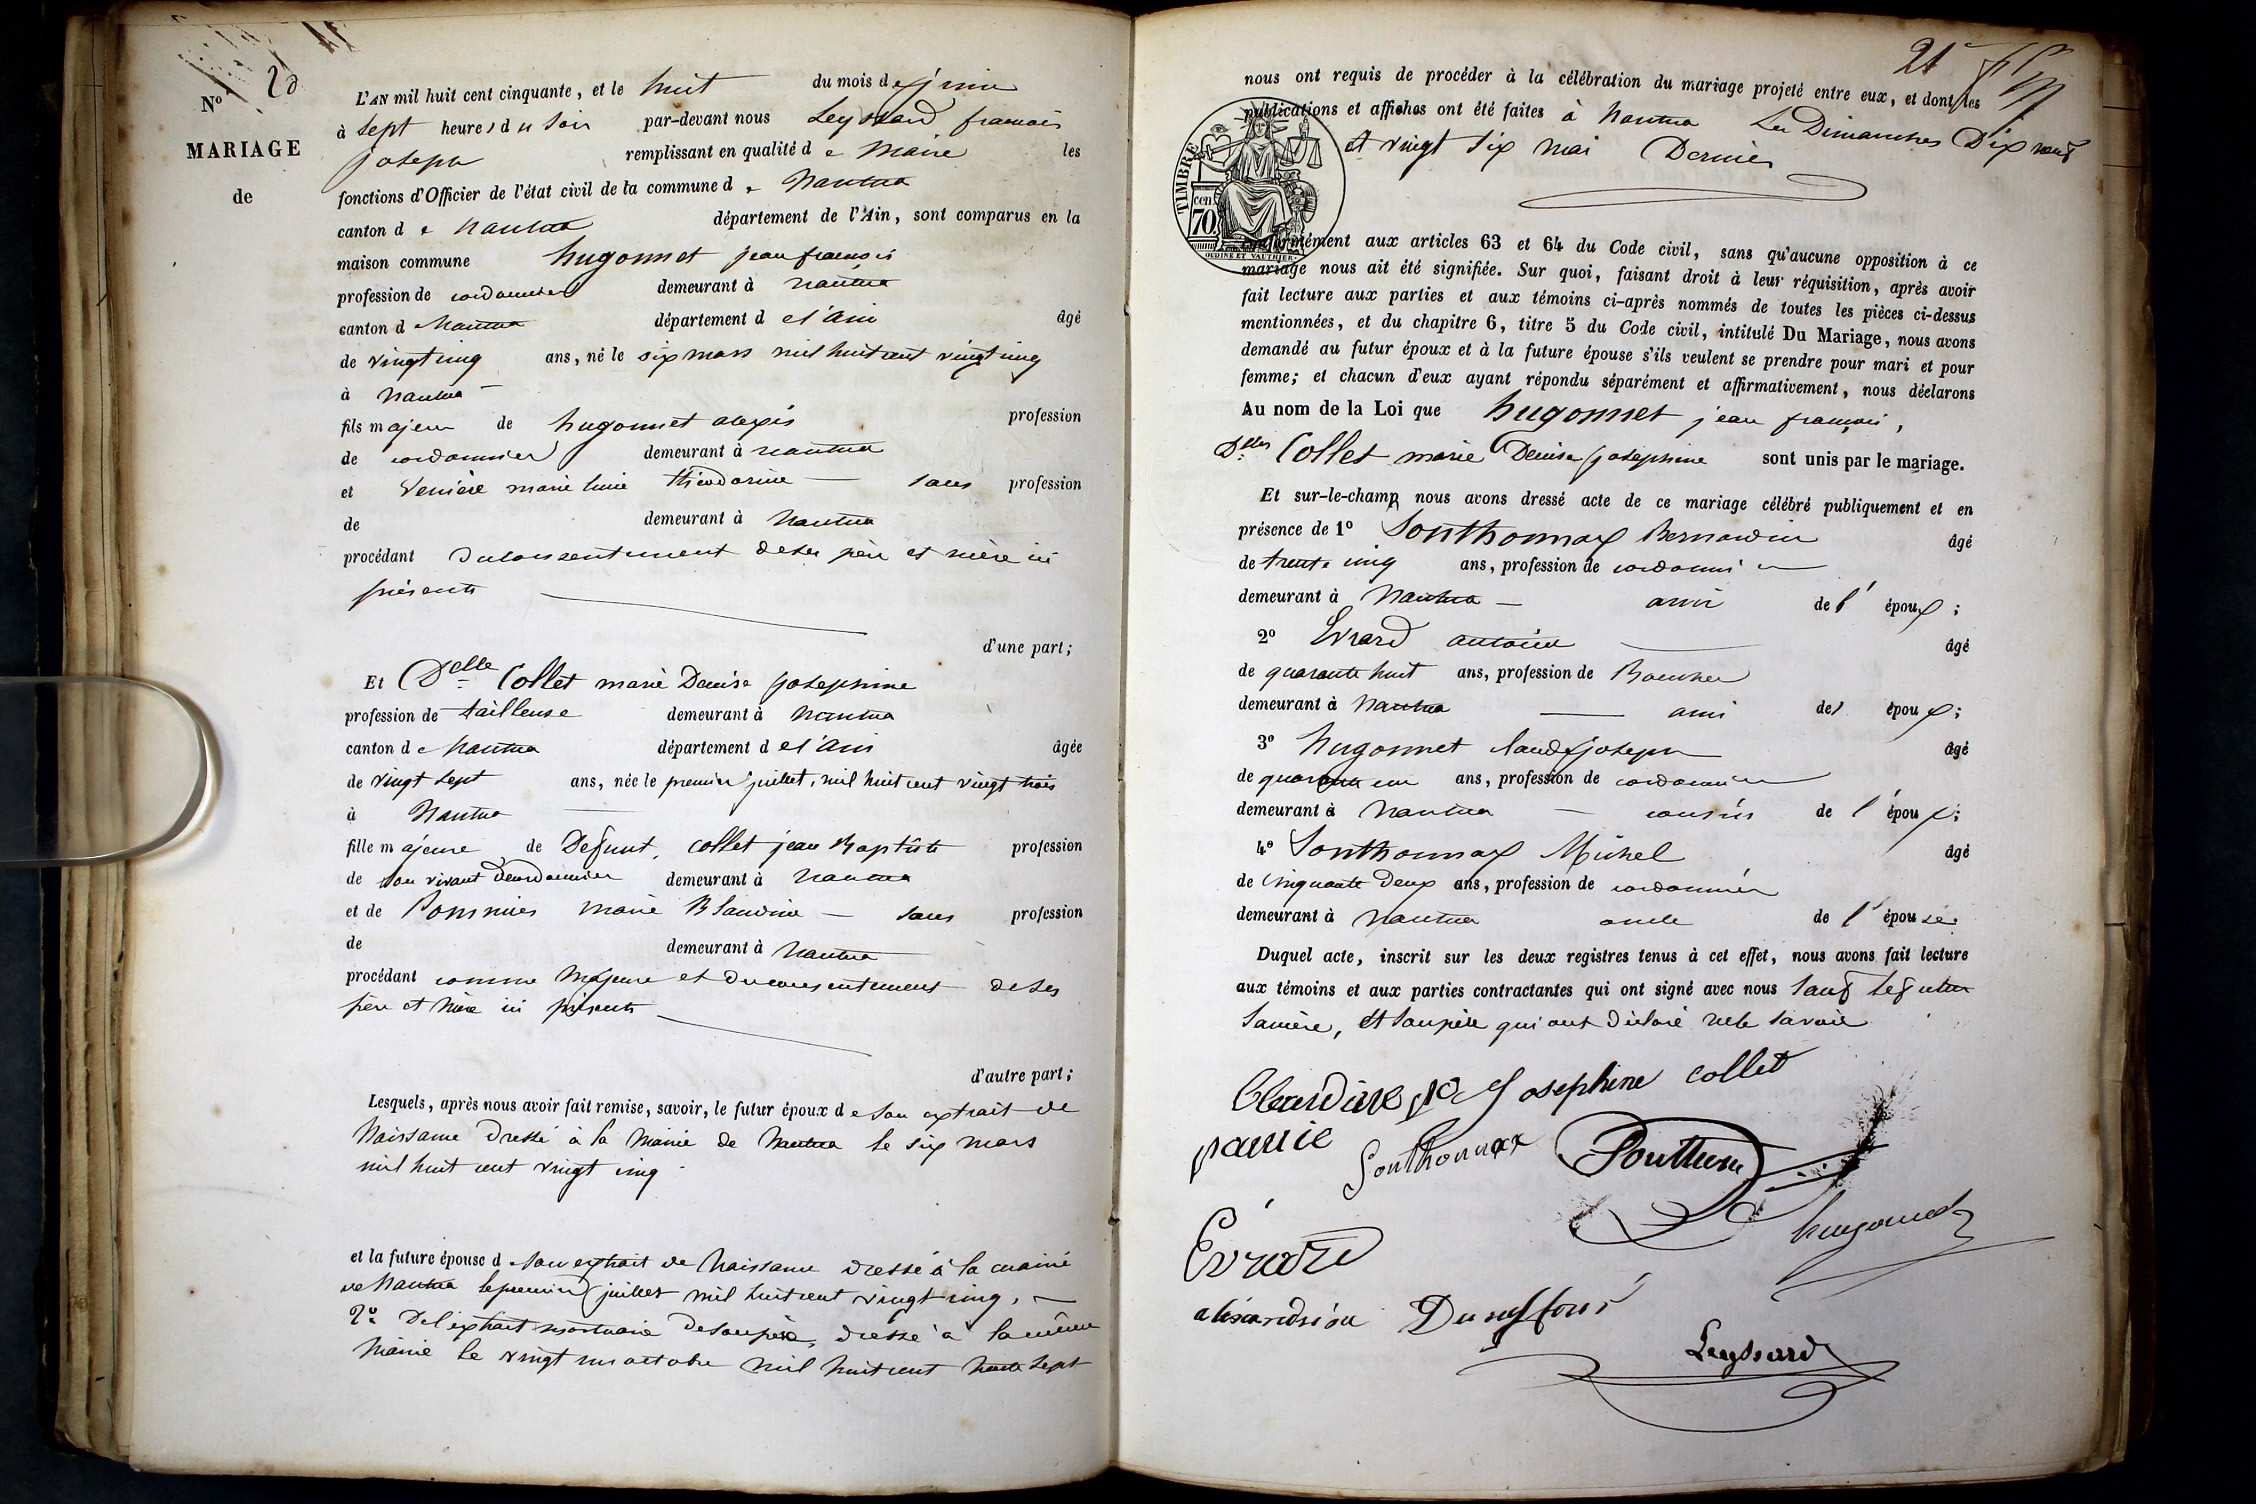 20
Nº
MARIAGE
de
L'AN mil huit cent cinquante, et le huit du mois de juin
à sept heures du soir par-devant nous Leyssard francois
joseph remplissant en qualité de Maire les
fonctions d'Officier de l'état civil de la commune de Nantua
canton de Nantua département de l'Ain, sont comparus en la
maison commune hugonnet jean francois
profession de cordonnier demeurant à nantua
canton de Nantua département de l'Ain âgé
de vingt cinq ans, né le six mars mil huit cent vingt cinq
à nantua
fils majeur de hugonnet alexis profession
de cordonnier demeurant à nantua
et marie théodorine sans profession
de demeurant à Nantua
procédant du consentement de ses père et mère ici
présents
d'une part;
Et Delle Collet marie Denise josephine
profession de tailleuse demeurant à nantua
canton de Nantua département de l'Ain âgée
de vingt sept ans, née le premier juillet, mil huit cent vingt trois
à Nantua
fille majeure de Defunt, collet jean Baptiste profession
de son vivant de cordonnier demeurant à nantua
et de marie Blandine sans profession
de demeurant à Nantua
procédant comme Majeure et du consentement de ses
père et mère ici présents
d'autre part;
Lesquels, après nous avoir fait remise, savoir, le futur époux de son extrait de
Naissance Dressé à la Mairie de Nantua le six mars
mil huit cent vingt cinq
et la future épouse d son extrait de Naissance dressé à la mairie
de Nantua le premier juillet mil huit cent vingt cinq,
2º De l'extrait mortuaire de son père, dressé à la même
Mairie le vingt un octobre mil huit cent trente sept
21
nous ont requis de procéder à la célébration du mariage projeté entre eux, et dont les
publications et affiches ont été faites à Nantua Les Dimanches Dix neuf
et vingt six mai Dernier
TIMBRE
70 cen
OUDINÉ ET VAUTHIER
conformément aux articles 63 et 64 du Code civil, sans qu'aucune opposition à ce
mariage nous ait été signifiée. Sur quoi, faisant droit à leur réquisition, après avoir
fait lecture aux parties et aux témoins ci-après nommés de toutes les pièces ci-dessus
mentionnées, et du chapitre 6, titre 5 du Code civil, intitulé Du Mariage, nous avons
demandé au futur époux et à la future épouse s'ils veulent se prendre pour mari et pour
femme; et chacun d'eux ayant répondu séparément et affirmativement, nous déclarons
Au nom de la Loi que hugonnet jean françois,
Delle Collet marie Denise josephine sont unis par le mariage.
Et sur-le-champ nous avons dressé acte de ce mariage célébré publiquement et en
présence de 1º Sonthonnax Bernardin âgé
de trente cinq ans, profession de cordonnier
demeurant à Nantua ami de l'époux;
2º Evrard antoine âgé
de quarante huit ans, profession de Boucher
demeurant à Nantua ami de l époux;
3º hugonnet Claude joseph âgé
de quarante un ans, profession de cordonnier
demeurant à Nantua cousin de l'époux;
4º Sonthonnax Michel âgé
de cinquante deux ans, profession de cordonnier
demeurant à nantua oncle de l'épouse.
Duquel acte, inscrit sur les deux registres tenus à cet effet, nous avons fait lecture
aux témoins et aux parties contractantes qui ont signé avec nous sauf le futur
sa mère, et son père qui ont déclaré ne le savoir
Josephine collet
Sonthonnax
hugonnet
Evrard
Leyssard